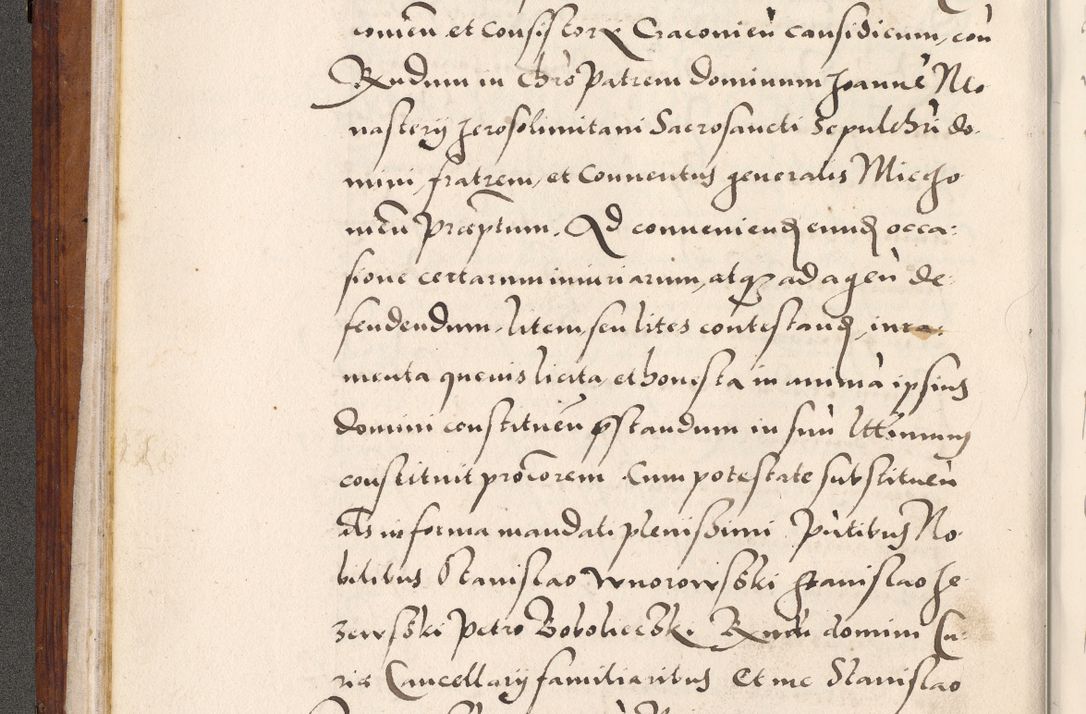 comen et Consistorx Craconien causidicum, con
Rndum in Chro Patrem dominum Joanne Mo
nastery Jerosolimitani Sacrosancti Sepulchri do
mini, fratrem, et Conuentus generalis Miecho
uien Præptum. Ad conueniend eund occa:
sione certarum iniuriarum, atq ad agen de:
fendendum, litem, seu lites contestand, iura:
menta queuis licita, et honesta in animà ipsius
domini constituen pstandum in sui lttimum
constituit procorem Cum potestate substituen
als in forma mandati plenissimi Pntibus No
bilibus Stanislao Wnorowski Stanislao Je
zewski Petro Bobolieczki Rndi domini Cu:
riæ Cancellary familiaribus Et me Stanislao